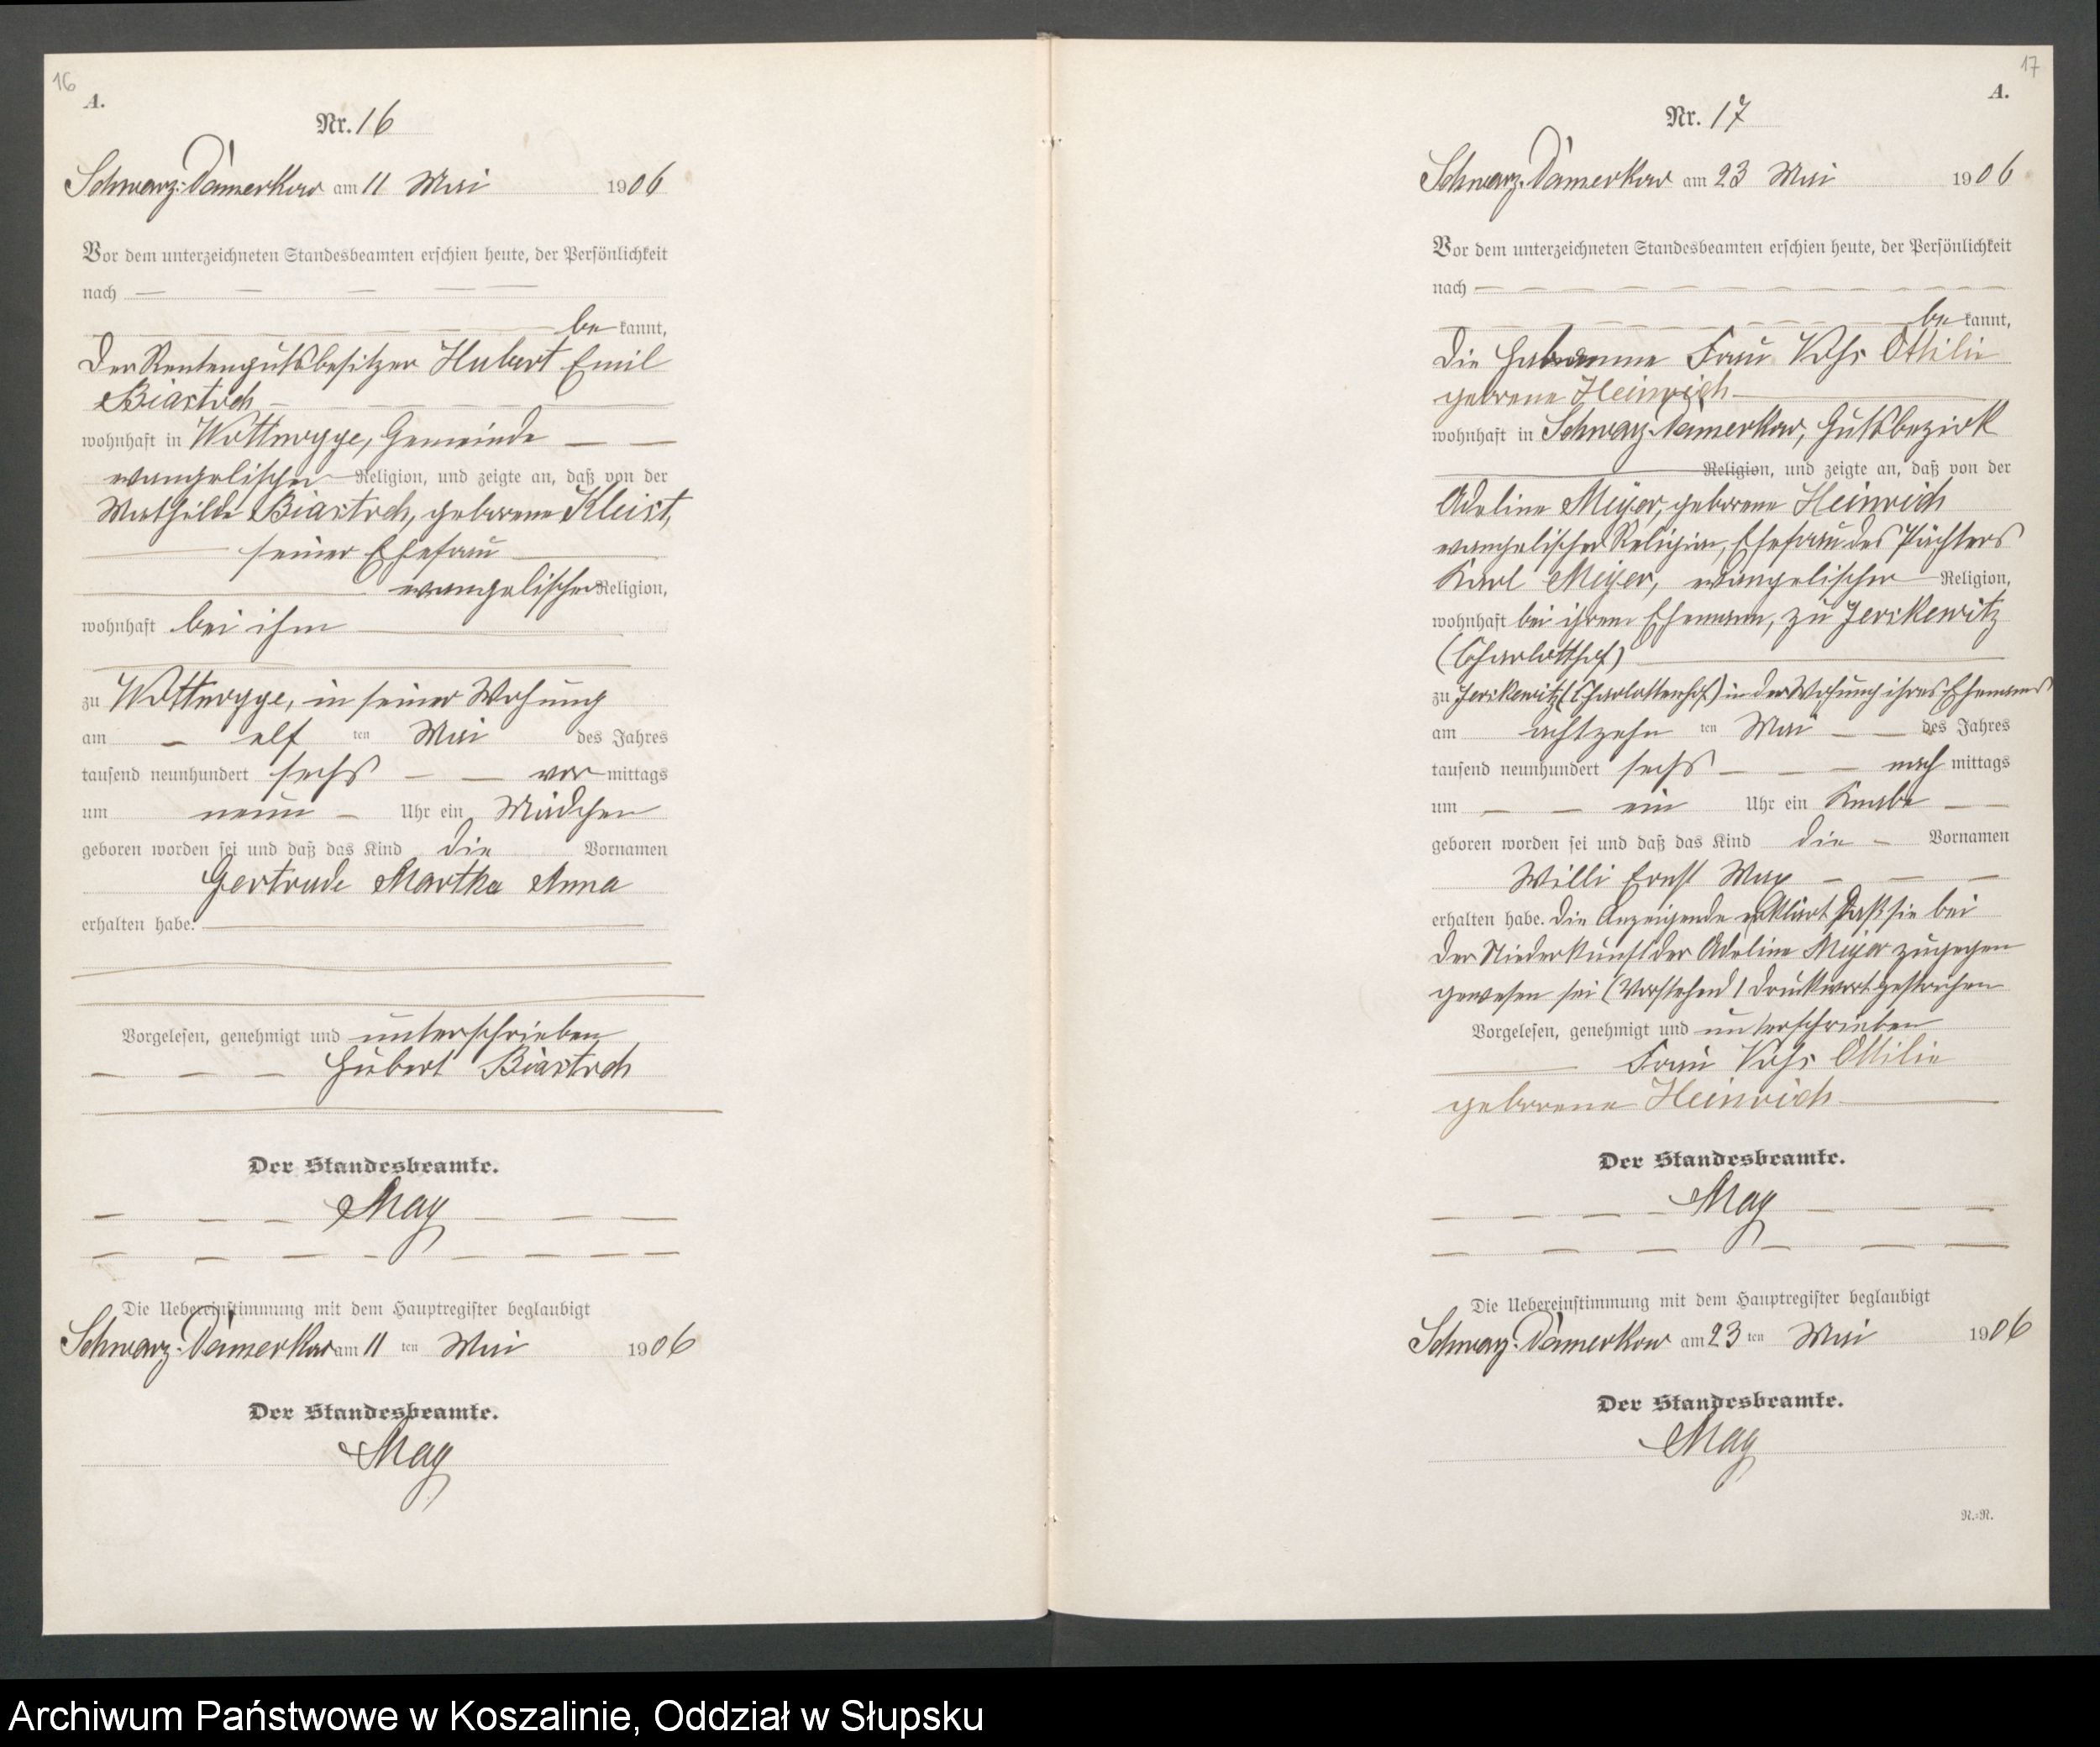 16
A.
Nr. 16
Schwarz-Damerkow am 11 Mai 1906
Vor dem unterzeichneten Standesbeamten erschien heute, der Persönlichkeit
nach
be kannt,
der Rentengutsbesitzer Hubert Emil
Biastoch
wohnhaft in Wottnogge, Gemeinde
evangelischer Religion, und zeigte an, daß von der
Mathilde Biastoch, geborene Kleist,
seiner Ehefrau
evangelischer Religion,
wohnhaft bei ihm
zu Wottnogge, in seiner Wohnung
am elf ten Mai des Jahres
tausend neunhundert sechs vor mittags
um neun Uhr ein Mädchen
geboren worden sei und daß das Kind die Vornamen
Gertrude Martha Anna
erhalten habe.
Vorgelesen, genehmigt und unterschrieben
Hubert Biastoch
Der Standesbeamte.
May
Die Uebereinstimmung mit dem Hauptregister beglaubigt
Schwarz-Damerkow am 11 ten Mai 1906
Der Standesbeamte.
May
17
A.
Nr. 17
Schwarz-Damerkow am 23 Mai 1906
Vor dem unterzeichneten Standesbeamten erschien heute, der Persönlichkeit
nach
be kannt,
die Hebamme Frau Ottilie
geborene Heinrich
wohnhaft in Schwarz-Damerkow, Gutsbezirk
Religion, und zeigte an, daß von der
Adeline Meyer, geborene Heinrich
evangelischer Religion, Ehefrau des Pächters
Karl Meyer, evangelischer Religion,
wohnhaft bei ihrem Ehemann, zu Jerskewitz
(Charlotthof)
zu Jerskewitz (Charlottenhof) in der Wohnung ihres Ehemanns
am achtzehn ten Mai des Jahres
tausend neunhundert sechs nach mittags
um ein Uhr ein Knabe
geboren worden sei und daß das Kind die Vornamen
Willi Ernst Max
erhalten habe. Die Anzeigende erklärt daß sie bei
der Niederkunft der Adeline Meyer zugegen
gewesen sei (Vorstehend 1 Druckwort gestrichen
Vorgelesen, genehmigt und unterschrieben
Frau Ottilie
geborene Heinrich
Der Standesbeamte.
May
Die Uebereinstimmung mit dem Hauptregister beglaubigt
Schwarz-Damerkow am 23 ten Mai 1906
Der Standesbeamte.
May
R.=R.
Archiwum Państwowe w Koszalinie, Oddział w Słupsku